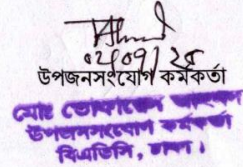 ০২/০৭/২৫
উপজনসংযোগ কর্মকর্তা
মোঃ তোফায়েল আহমদ
উপজনসংযোগ কর্মকর্তা
বিএডিসি, ঢাকা।